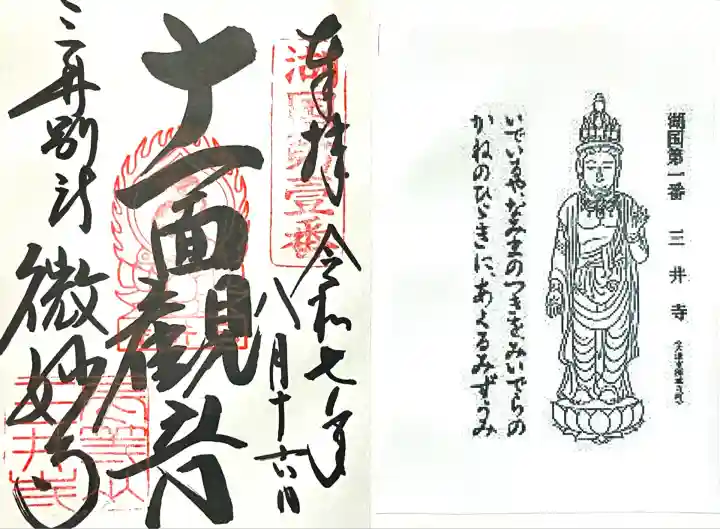 奉拝 令和七年
八月十六日
湖国第壹番
十一面観音
三井別所 微妙寺
湖国第一番 三井寺
いでいるや、なみまのつきをみいでらの
かねのひゞきに、あくるみずうみ